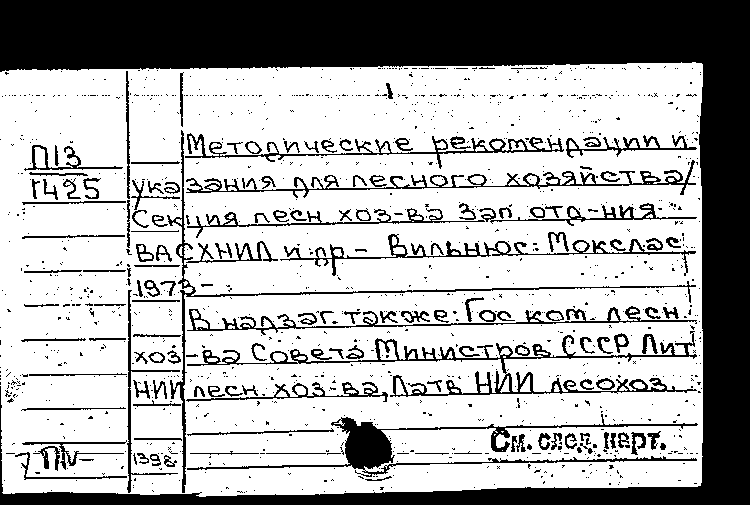 1
П13
1425
Методические рекомендации и
указания для лесного хозяйства/
Секция лесн. хоз-ва Зап. отд-ния
ВАСХНИЛ и др. - Вильнюс: Мокслас
1973 -
В надзаг. также: Гос. ком. лесн.
хоз-ва Совета Министров СССР, Лит
НИИ лесн. хоз-ва, Латв НИИ лесохоз.
См. след. карт.